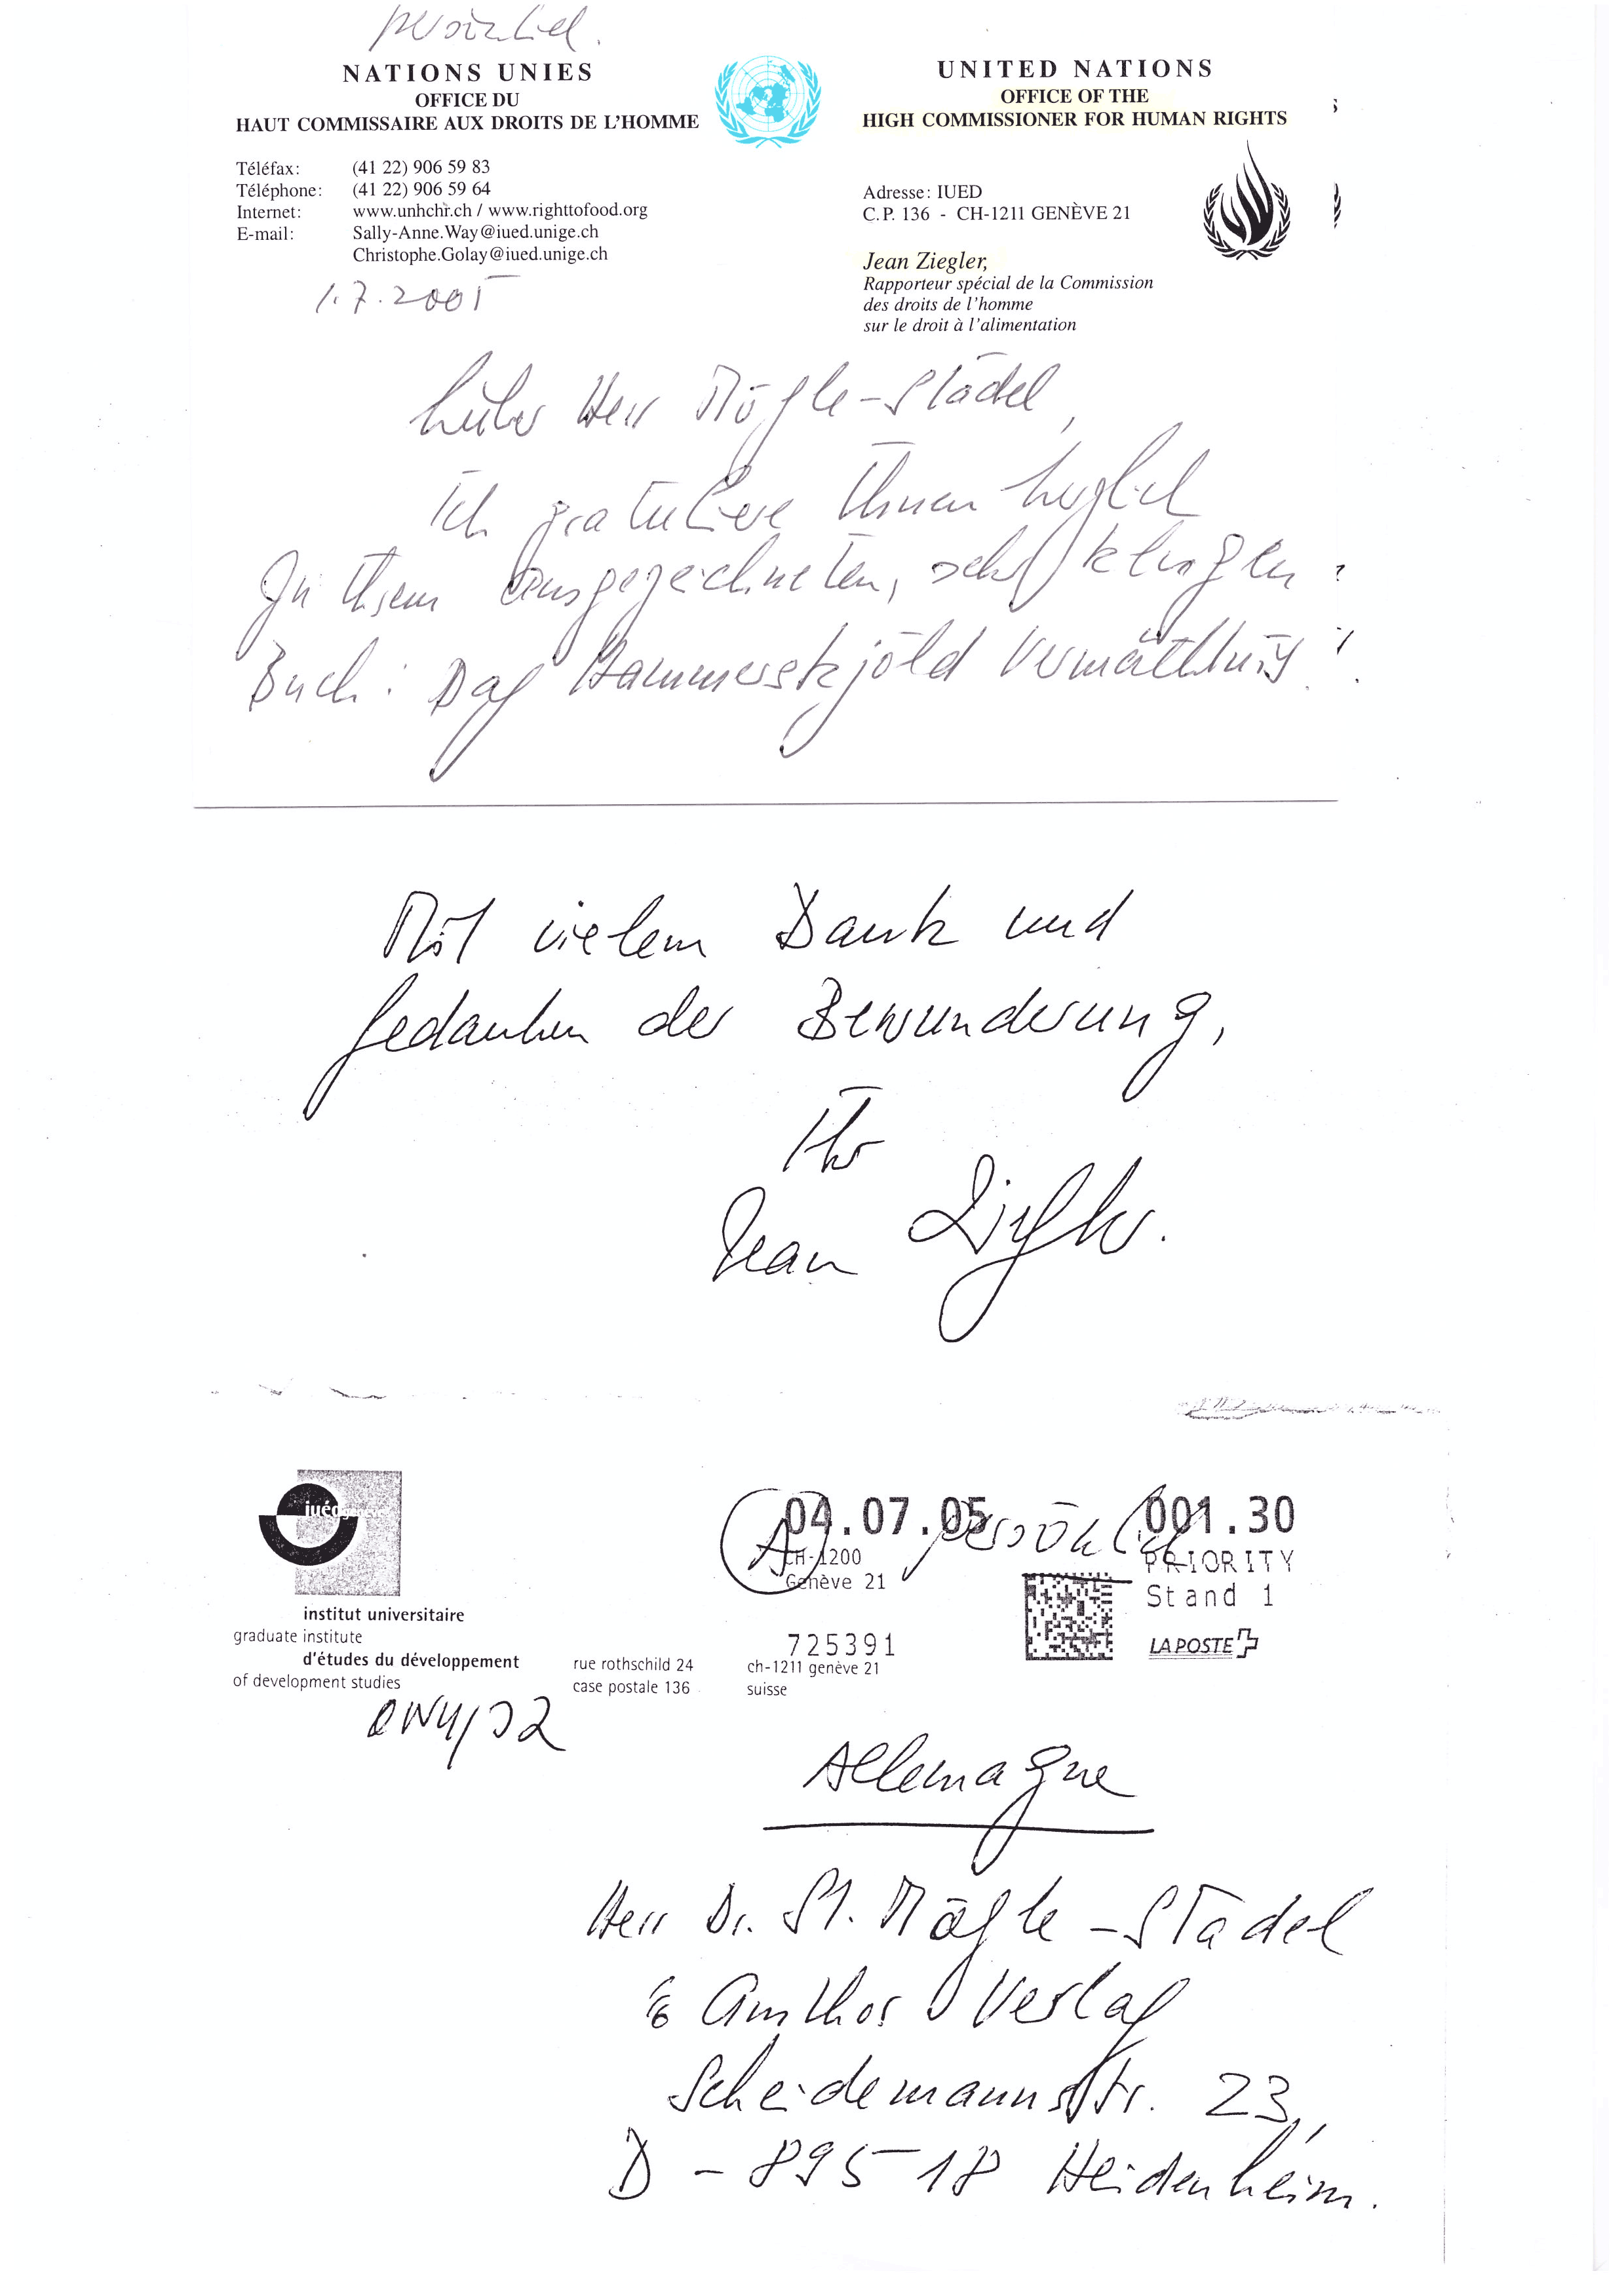 persönlich.
NATIONS UNIES
OFFICE DU
HAUT COMMISSAIRE AUX DROITS DE L'HOMME
UNITED NATIONS
OFFICE OF THE
HIGH COMMISSIONER FOR HUMAN RIGHTS
Téléfax: (41 22) 906 59 83
Téléphone: (41 22) 906 59 64
Internet: www.unhchr.ch / www.righttofood.org
E-mail: Sally-Anne.Way@iued.unige.ch
Christophe.Golay@iued.unige.ch
Adresse: IUED
C.P. 136 - CH-1211 GENÈVE 21
Jean Ziegler,
Rapporteur spécial de la Commission
des droits de l'homme
sur le droit à l'alimentation
1.7.2005
Lieber Herr Mögle-Stadel,
Ich gratuliere Ihnen herzlich
zu Ihrem ausgezeichneten, sehr klugen
Buch: Dag Hammerskjöld Vermächtnis.
Mit vielem Dank und
Gedanken der Bewunderung,
Ihr
Jean Ziegler.
iuéd
institut universitaire
graduate institute
d'études du développement
of development studies
rue rothschild 24
case postale 136
ch-1211 genève 21
suisse
A
persönlich
04.07.05
CH-1200
Genève 21
725391
001.30
PRIORITY
Stand 1
LA POSTE
Allemagne
Herr Dr. St. Mögle-Stadel
c/o Amthor Verlag
Scheidemannstr. 23,
D-89518 Heidenheim.